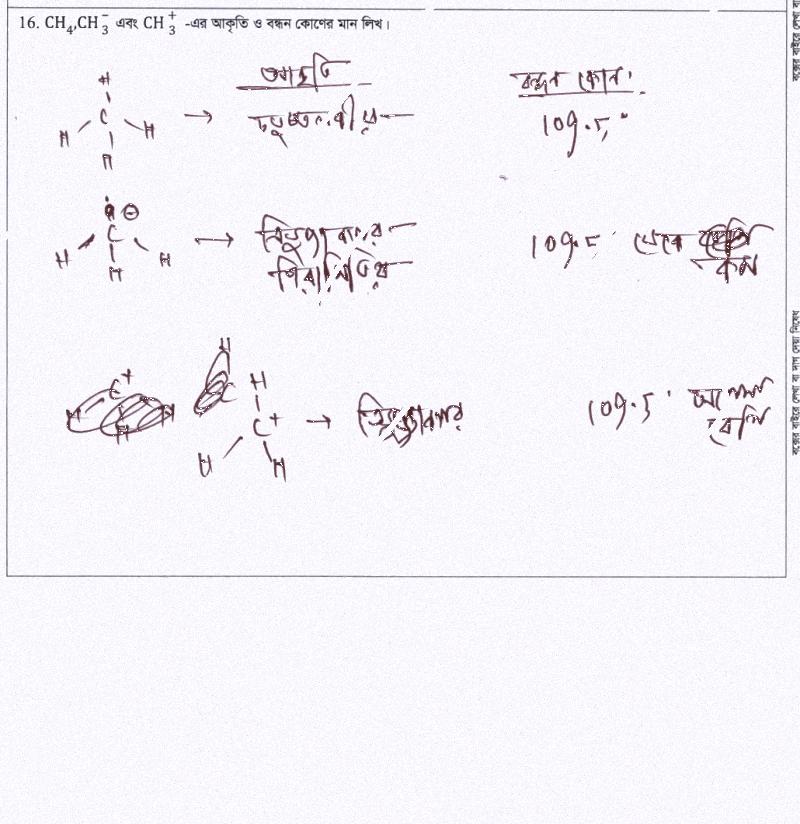 16. CH₄,CH₃⁻ এবং CH₃⁺ -এর আকৃতি ও বন্ধন কোণের মান লিখ।
আকৃতি বন্ধন কোন
H
C
H H → চতুস্তলকীয় 109.5°
H
⊖
C
H H → ত্রিভুজাকার 109.5 থেকে
H পিরামিডীয় কম
H
C⁺ H
C⁺ → ত্রিভুজাকার 109.5° অপেক্ষা
H H বেশি
বক্সের বাইরে লেখা বা দাগ দেয়া নিষেধ